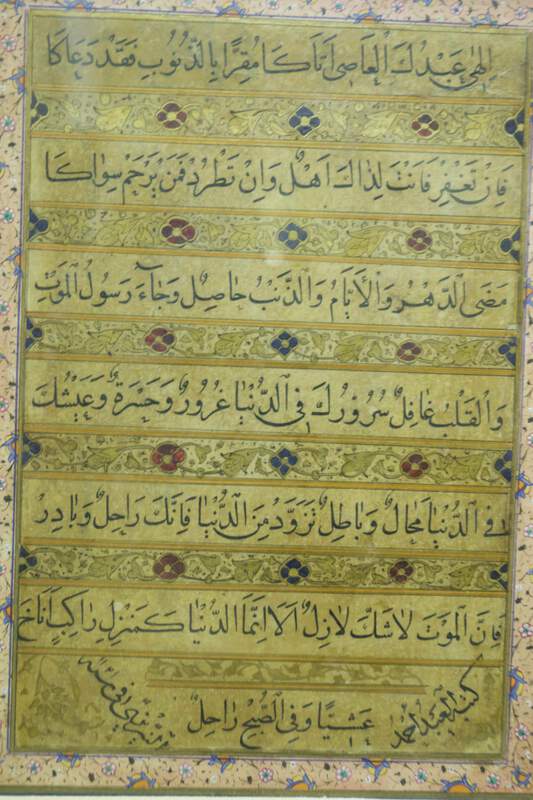 اِلٰهِی عَبْدُكَ الْعَاصِی اَتَاكَا مُقِرًّا بِالذُّنُوبِ فَقَدْ دَعَاكَا
فَاِنْ تَغْفِرْ فَاَنْتَ لِذَاكَ اَهْلٌ وَاِنْ تَطْرُدْ فَمَنْ يَرْحَمْ سِوَاكَا
مَضَی الدَّهْرُ وَالْاَيَّامُ وَالذَّنْبُ حَاصِلٌ وَجَآءَ رَسُولُ الْمَوْتِ
وَالْقَلْبُ غَافِلٌ سُرُورُكَ فِی الدُّنْيَا غُرُورٌ وَحَسْرَةٌ وَعَيْشُكَ
فِی الدُّنْيَا مَحَالٌ وَبَاطِلٌ تَزَوَّدْ مِنَ الدُّنْيَا فَاِنَّكَ رَاحِلٌ وَبَادِرْ
فَاِنَّ الْمَوْتَ لَاشَكَّ لَازِلٌ اَلَا اِنَّمَا الدُّنْيَا كَمَنْزِلِ رَاكِبٍ اَنَاخَ
كتبه العبد احمد عَشِيًّا وَفِی الصُّبْحِ رَاحِلٌ